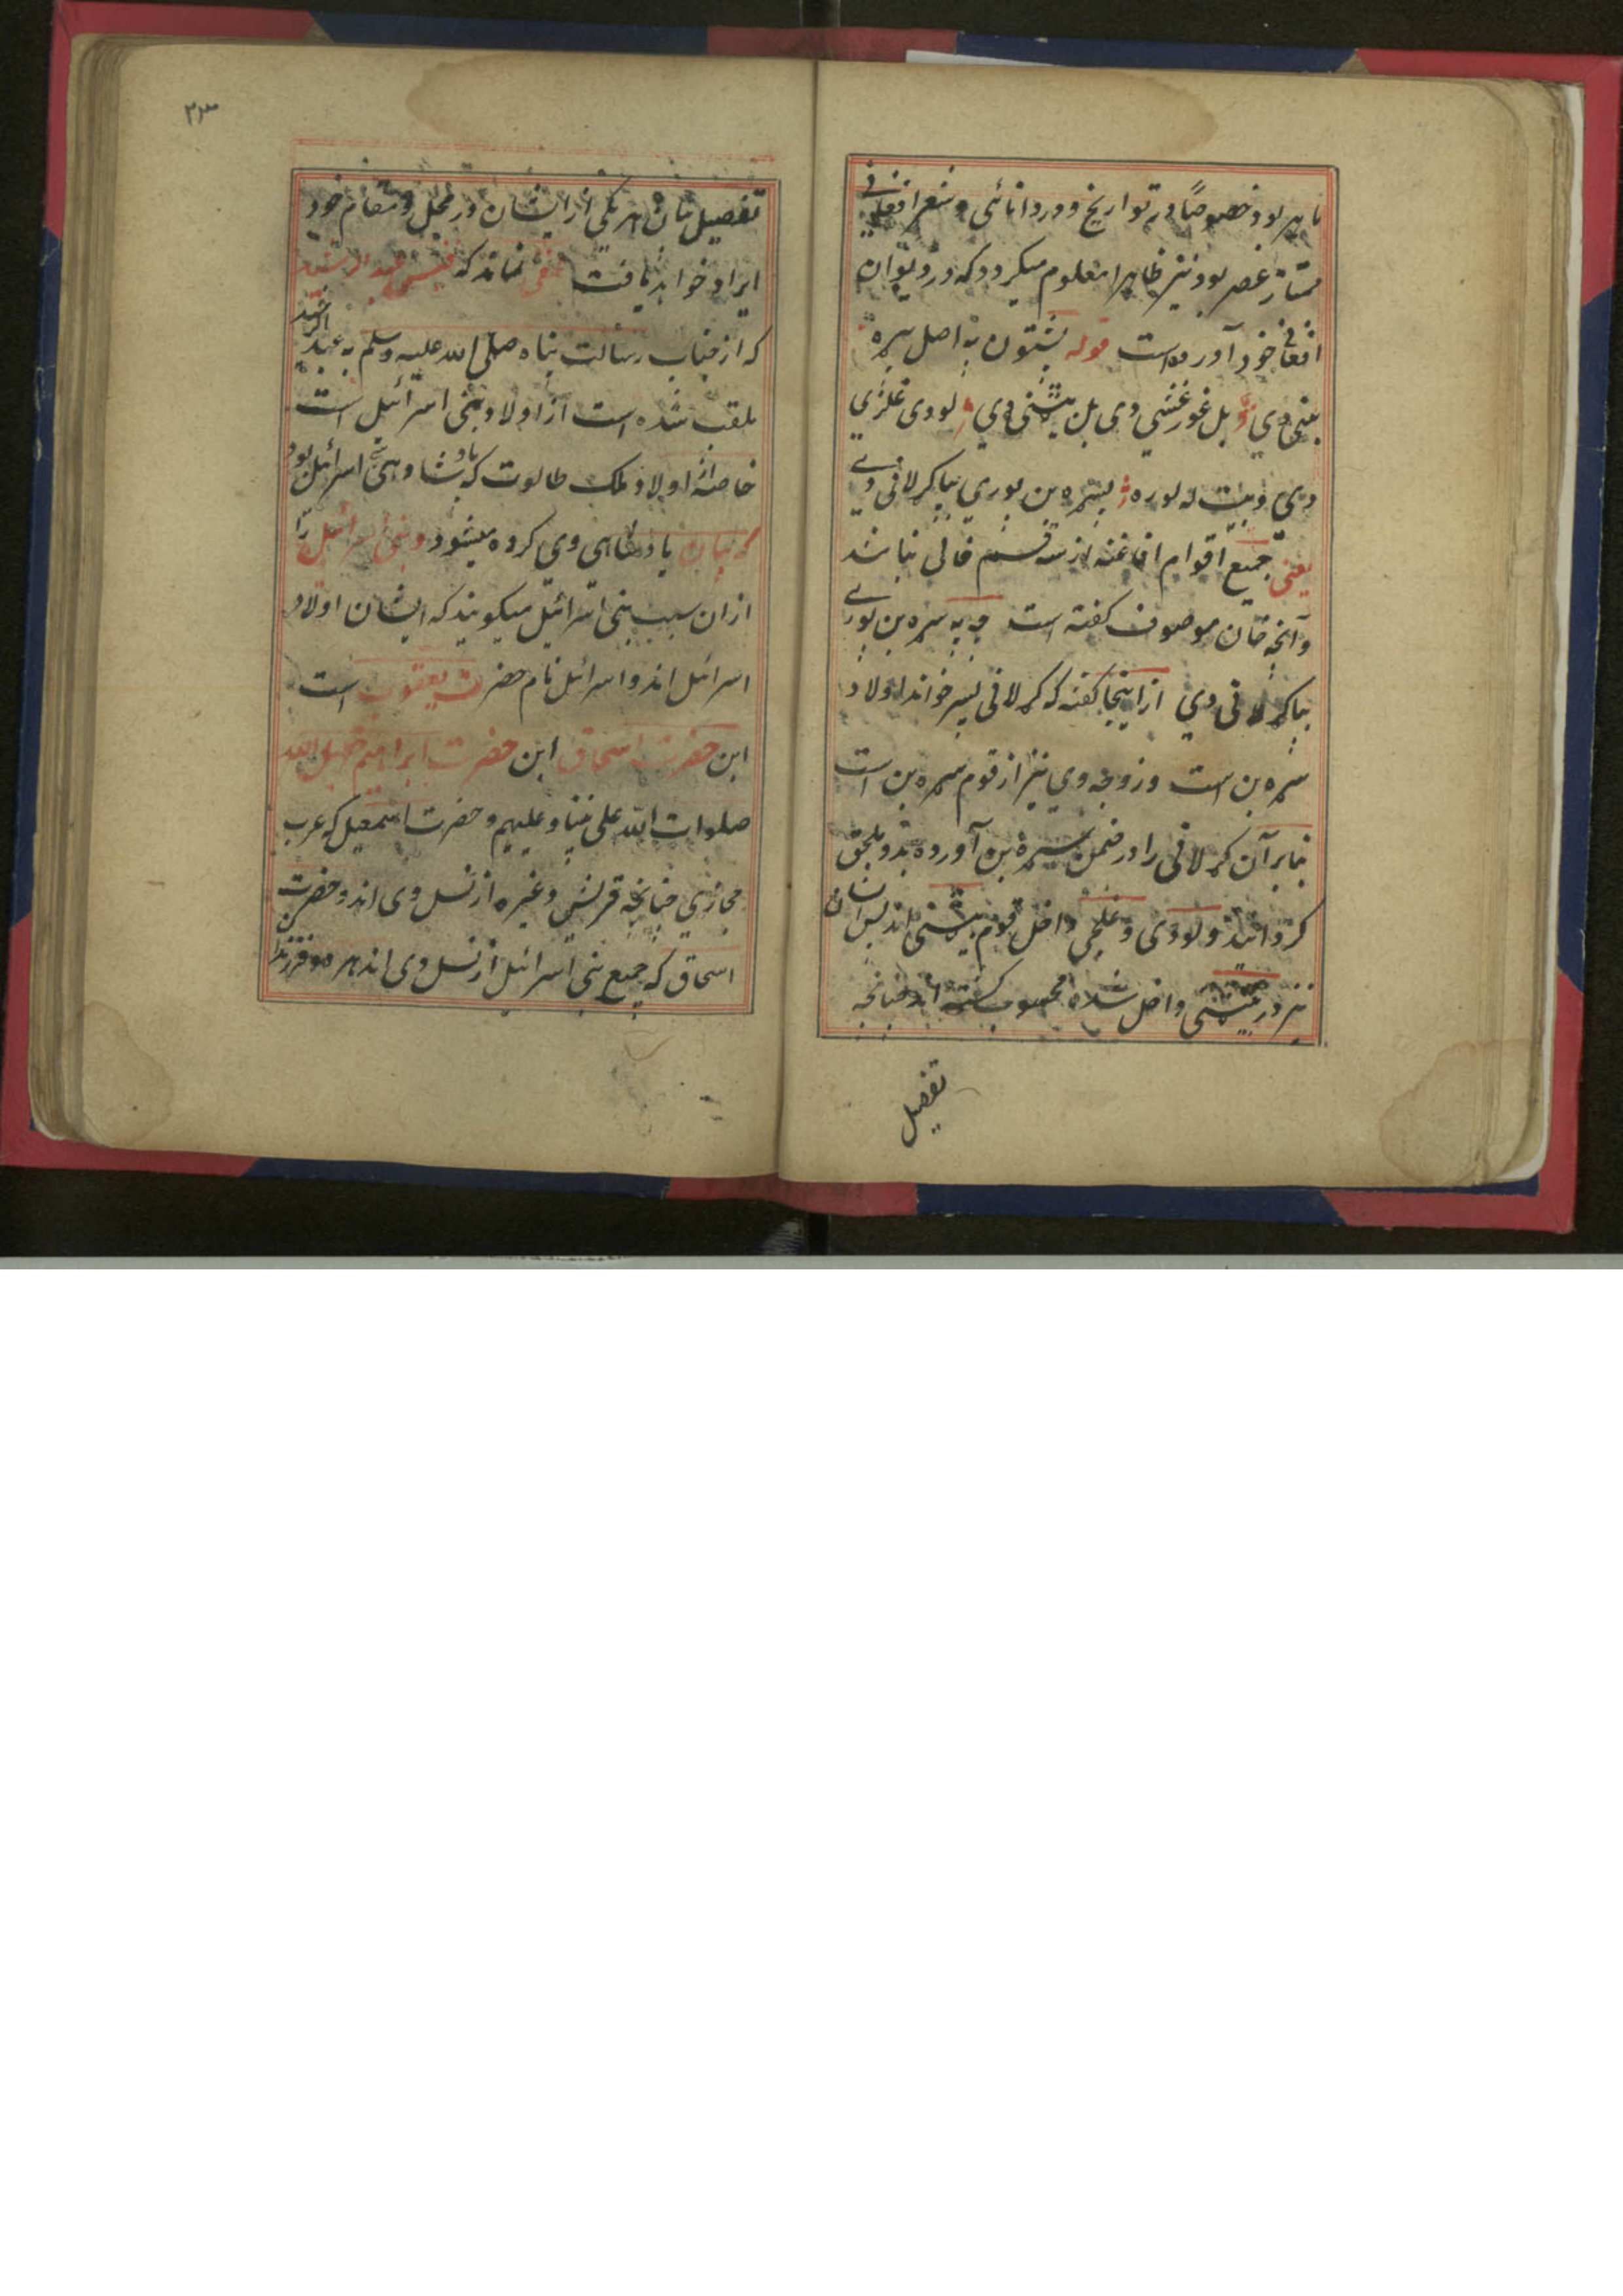 ماهر بود خصوصاً در تواریخ و در دانائی و شعر افغانی
ممتاز عصر بود نیز ظاهرا معلوم میگردد که در دیوان
افغانی خود آورده است قوله پښتون په اصل سره
بنی دي بل غورغښتي دی بل بیټنی دي لودی غلزی
دي بیټ له لوره سره بن بوري بیا کرلانی دے
یعنی جمیع اقوام افاغنه از سه قسم خالی نباشد
و آنچه خان موصوف گفته است چه په سره بن بورے
بیا کرلانی دي از اینجا گفته که کرلانی پسر خوانده اولاد
سره بن است و زوجه وي نیز از قوم سره بن است
بنابر آن کرلانی را در ضمن سره بن آورده بدو ملحق
گردانید و لودی و غلجی داخل قوم بیټنی اند پس ایشان
نیز در بیټنی داخل شده محسوب گشته اند چنانچه
تفصیل
۲۳
تفصیل بیان هر یکی از ایشان در محل و مقام خود
ایراد خواهد یافت مخفی نماند که قیس عبد الرشید
که از جناب رسالت پناه صلی الله علیه وسلم به عبد الرشید
ملقب شده است از اولاد بنی اسرائیل است
خاصةً اولاد ملک طالوت که بادشاه بنی اسرائیل بود
که بیان بادشاهی وی کرده میشود و بنی اسرائیل را
از ان سبب بنی اسرائیل میگویند که ایشان اولاد
اسرائیل اند و اسرائیل نام حضرت یعقوب است
ابن حضرت اسحاق ابن حضرت ابراهیم خلیل الله
صلوات الله علی نبینا و علیهم و حضرت اسمعیل که عرب
حجازي چنانچه قریش و غیره از نسل وی اند و حضرت
اسحاق که جمیع بنی اسرائیل از نسل وی اند هر دو فرزند